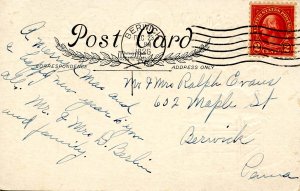 Post Card
BERWICK
CORRESPONDENCE
ADDRESS ONLY
A Merry Xmas and
a happy new year to you
all. Mr. & Mrs B. Berlin
and family.
Mr & Mrs Ralph Evans
632 Maple St
Berwick
Penna